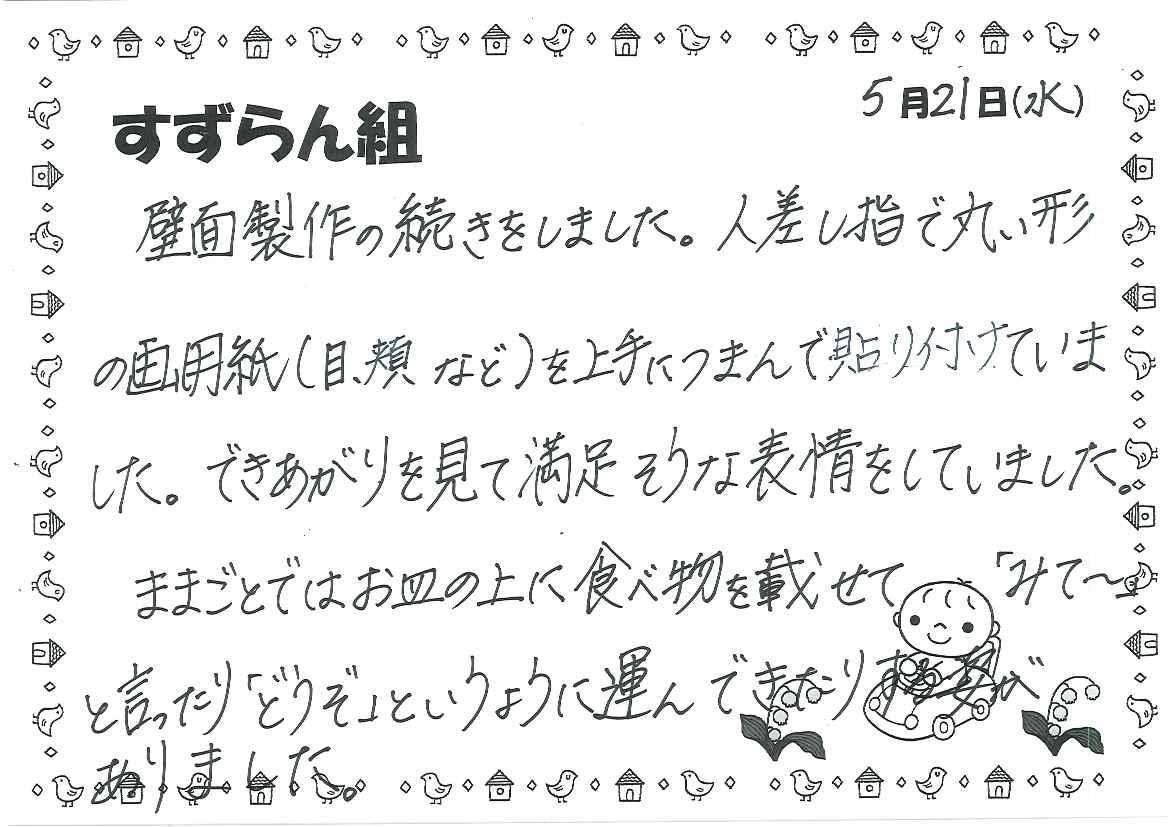 5月21日(水)
すずらん組
壁面製作の続きをしました。人差し指で丸い形
の画用紙(目、頬 など)を上手につまんで貼り付けていま
した。できあがりを見て満足そうな表情をしていました。
ままごとではお皿の上に食べ物を載せて 「みて～」
と言ったり「どうぞ」というように運んできたりする姿が
ありました。